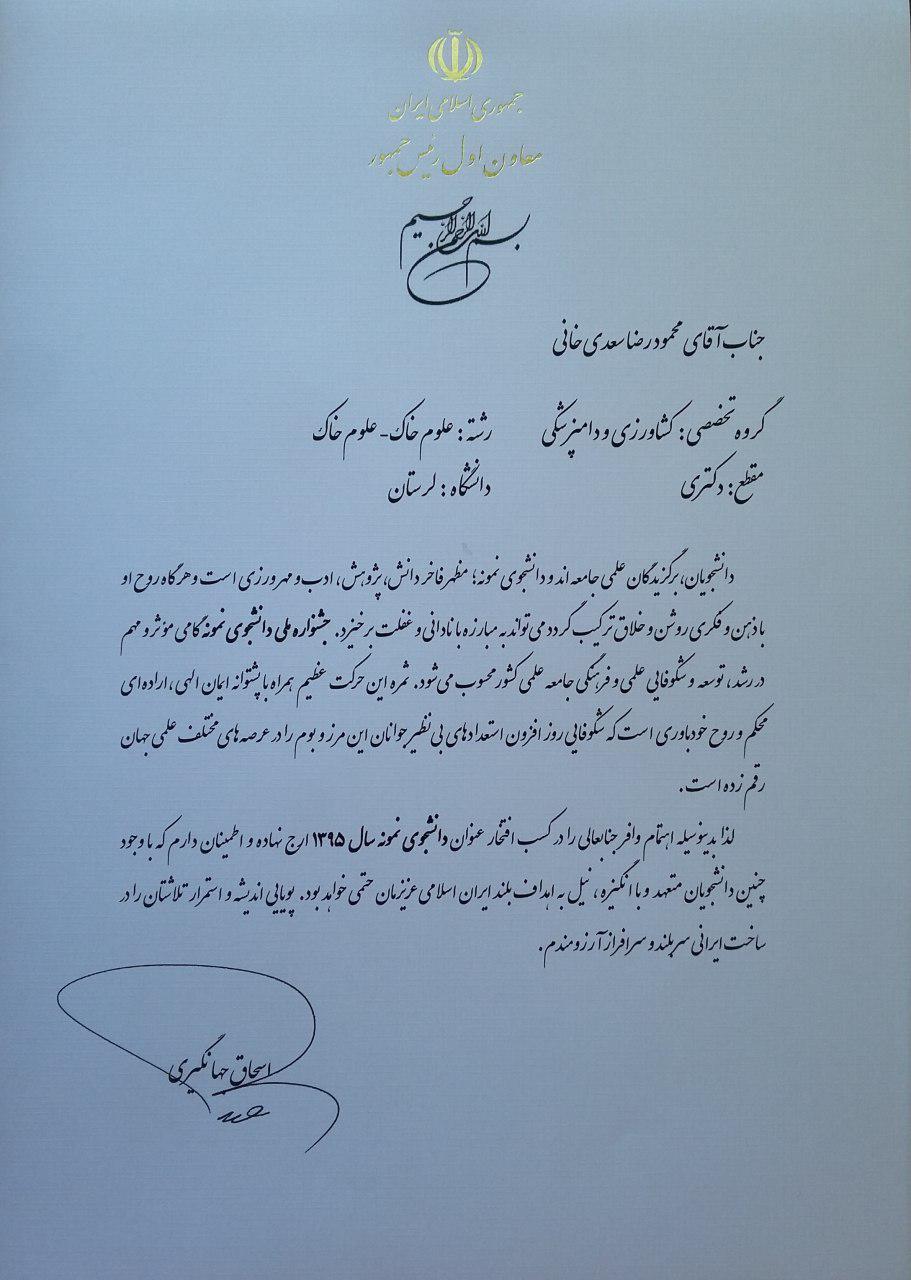 جمهوری اسلامی ایران
معاون اول رئیس جمهور
بسم الله الرحمن الرحیم
جناب آقای محمودرضا سعدی خانی
گروه تخصصی: کشاورزی و دامپزشکی رشته: علوم خاک - علوم خاک
مقطع: دکتری دانشگاه: لرستان
دانشجویان، برگزیدگان علمی جامعه اند و دانشجوی نمونه؛ مظهر فاخر دانش، پژوهش، ادب و مهرورزی است و هرگاه روح او
با ذهن و فکری روشن و خلاق ترکیب گردد می‌تواند به مبارزه با نادانی و غفلت برخیزد. جشنواره ملی دانشجوی نمونه گامی مؤثر و مهم
در رشد، توسعه و شکوفایی علمی و فرهنگی جامعه علمی کشور محسوب می‌شود. ثمره این حرکت عظیم همراه با پشتوانه ایمان الهی، اراده‌ای
محکم و روح خودباوری است که شکوفایی روز افزون استعدادهای بی نظیر جوانان این مرز و بوم را در عرصه‌های مختلف علمی جهان
رقم زده است.
لذا بدینوسیله اهتمام وافر جنابعالی را در کسب افتخار عنوان دانشجوی نمونه سال ۱۳۹۵ ارج نهاده و اطمینان دارم که با وجود
چنین دانشجویان متعهد و با انگیزه، نیل به اهداف بلند ایران اسلامی عزیزمان حتمی خواهد بود. پویایی اندیشه و استمرار تلاشتان را در
ساخت ایرانی سربلند و سرافراز آرزومندم.
اسحاق جهانگیری